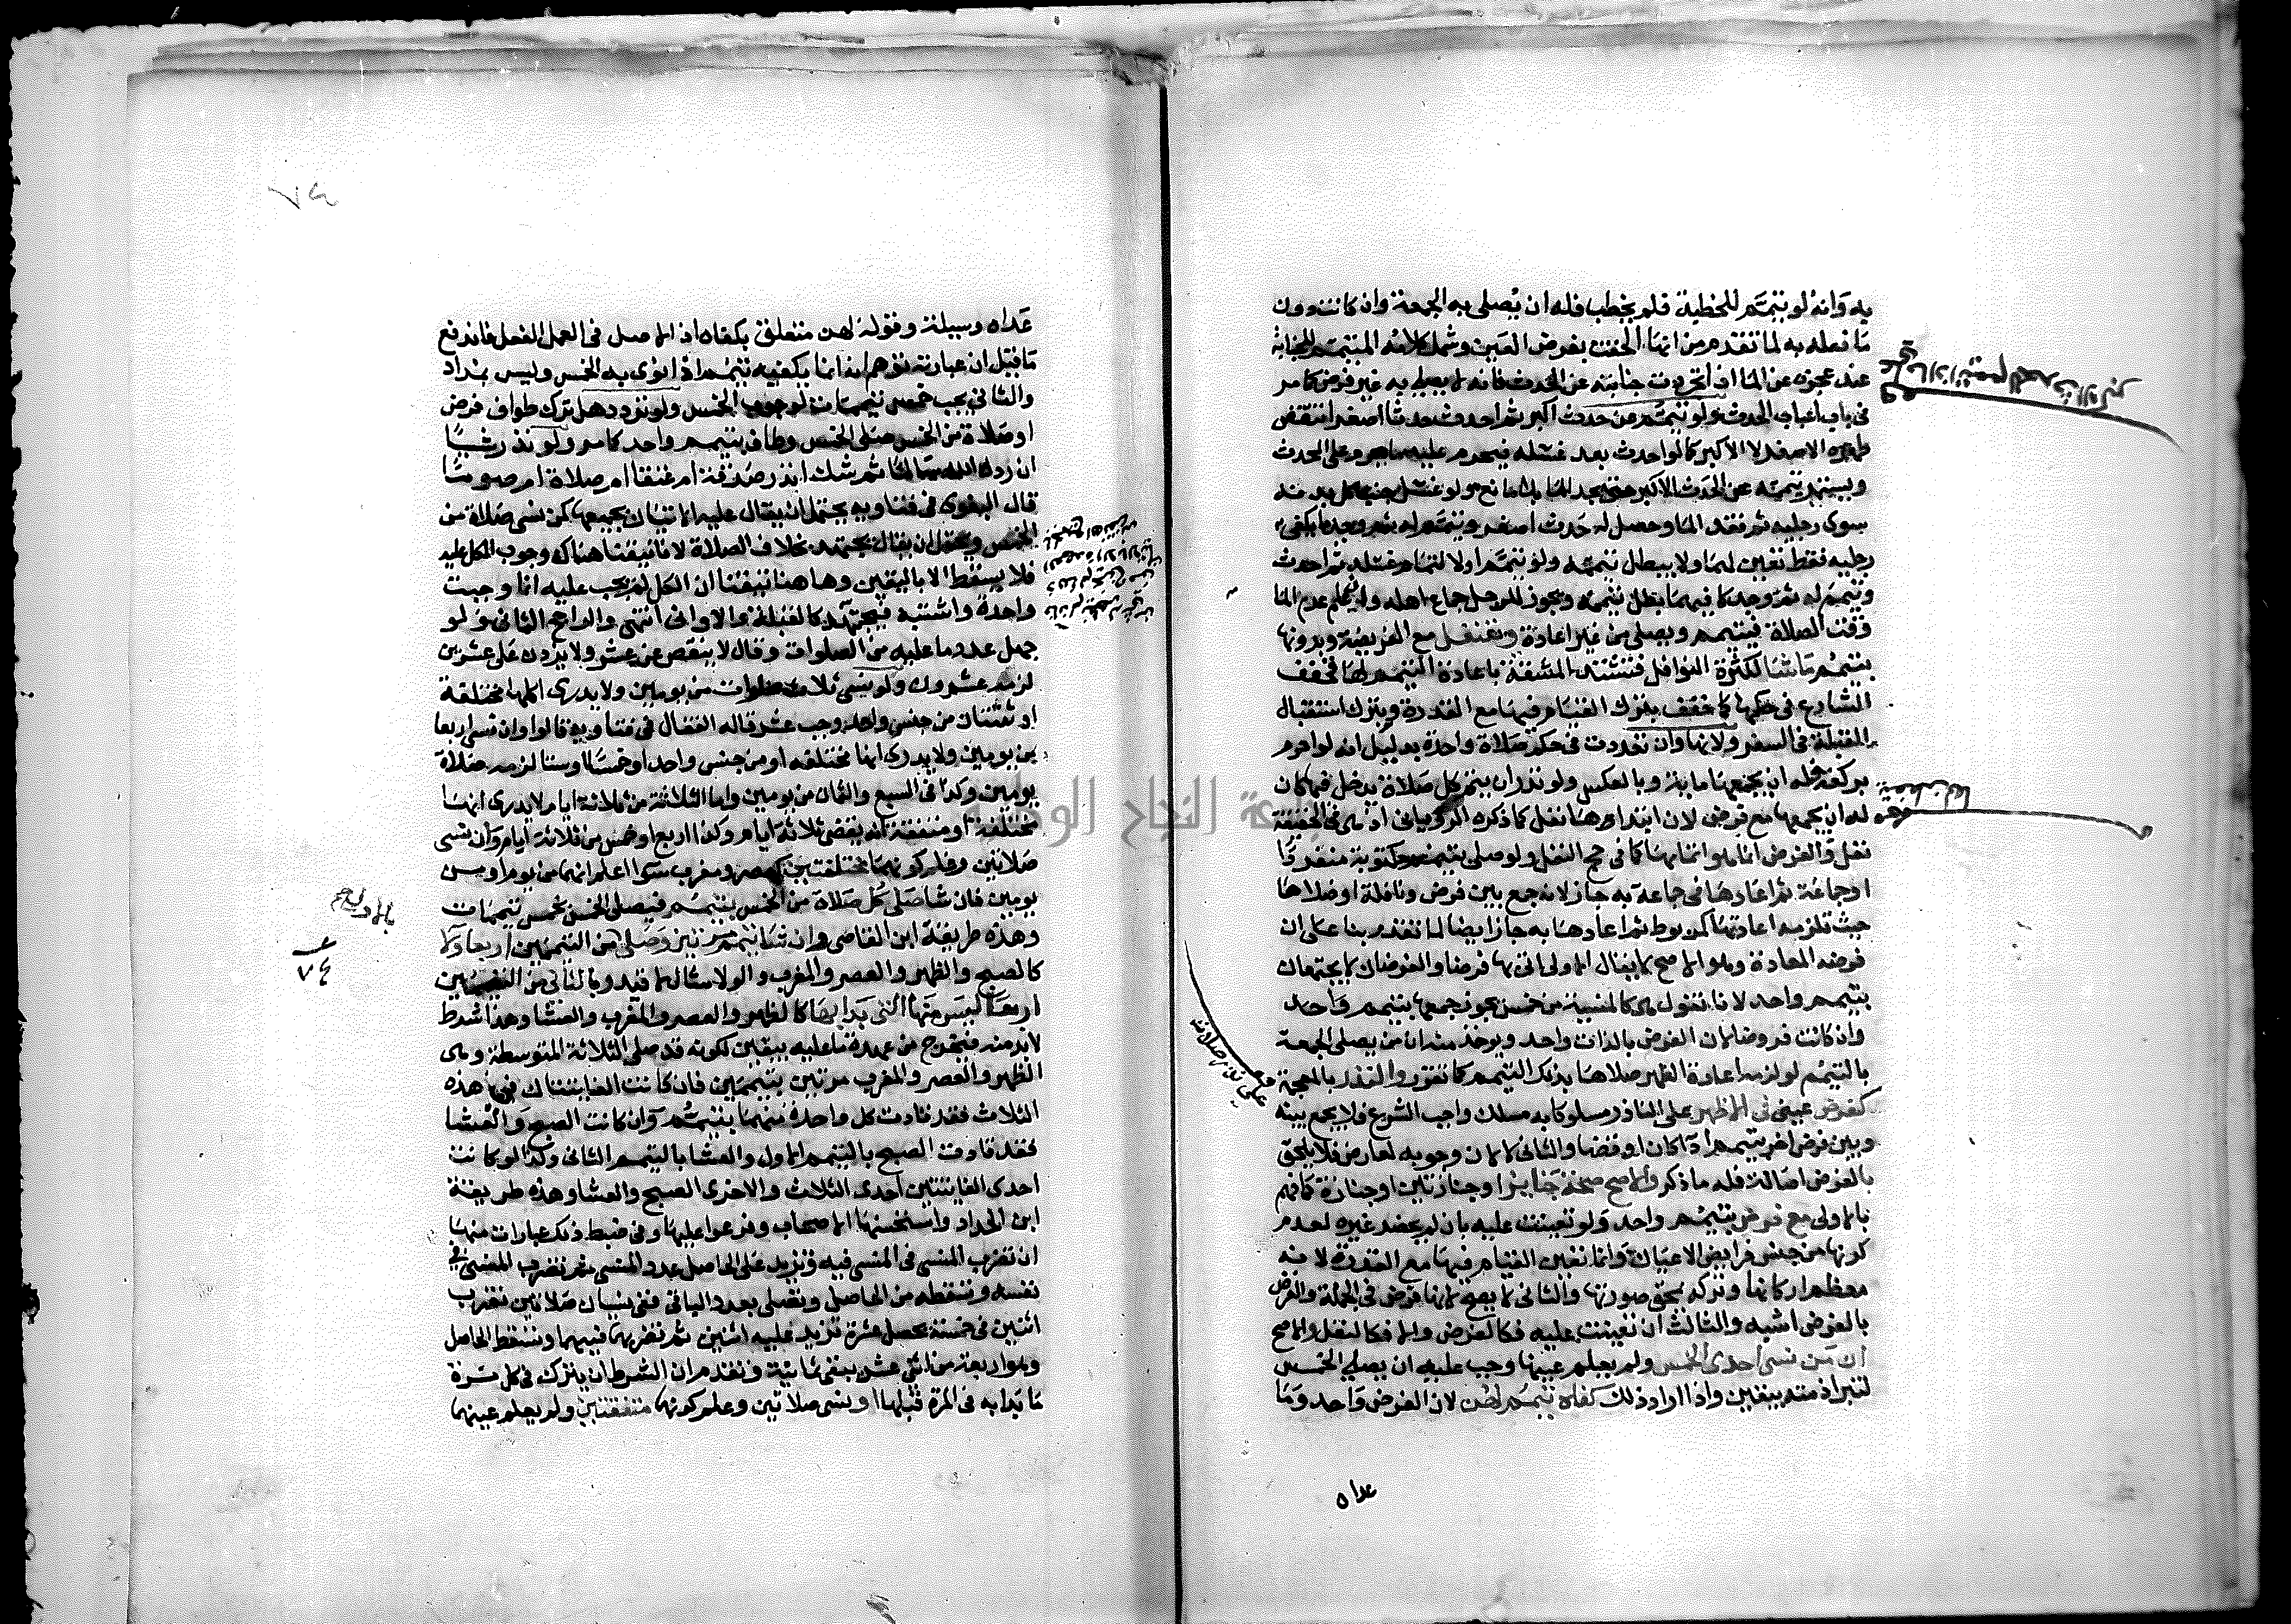 به وانه لو تيمم للخطبة فلم يخطب فله ان يصلي به الجمعة وان كانت دون
ما فعله به لما تقدم من انها الحقت بفرض العين وشمل كلامه المتيمم للجنابة
عند عجزه عن الماء اذا تجردت جنابته عن الحدث فانه لا يصلي به غير فرض كما مر
في باب اسباب الحدث ولو تيمم عن حدث اكبر ثم احدث حدثا اصغر انتقض
طهره الاصغر لا الاكبر كما لو احدث بعد غسله فيحرم عليه ما يحرم على المحدث
ويستمر تيممه عن الحدث الاكبر حتى يجد الماء بلا مانع ولو غسل جنب كل بدنه
سوى رجليه ثم فقد الماء وحصل له حدث اصغر وتيمم له ثم وجد ما يكفي
رجليه فقط تعين لهما ولا يبطل تيممه ولو تيمم اولا لتمام غسله ثم احدث
وتيمم له ثم وجد كافيهما بطل تيممه ويجوز للرجل جماع اهله وان علم عدم الماء
وقت الصلاة فيتيمم ويصلي من غير اعادة وتنفل مع الفريضة وبدونها
بتيمم ما شاء لكثرة النوافل فتشتد المشقة باعادة التيمم لها فخفف
الشارع في حكمها كما خفف بترك القيام فيها مع القدرة وبترك استقبال
القبلة في السفر ولانها وان تعددت في حكم صلاة واحدة بدليل انه لو احرم
بركعة فله ان يجمعها ماية وبالعكس ولو نذر ان يتم كل صلاة يدخل فيها كان
له ان يجمعها مع فرض لان ابتداءها نفل كما ذكره الروياني اذ هي في الحقيقة
نفل والفرض انما هو اتمامها كما في حج النفل ولو صلى بتيمم مكتوبة منفردا
او جماعة ثم اعادها في جماعة به جاز لانه جمع بين فرض ونافلة او صلاها
حيث تلزمه اعادتها كمربوط ثم اعادها به جاز ايضا لما تقدم بنا على ان
فرضه المعادة وهو الاصح لا يقال الاولى اتى بها فرضا والفرضان لا يجتمعان
بتيمم واحد لانا نقول هي كالمنسية من خمس يجوز جمعها بتيمم واحد
وان كانت فروضا لان الفرض بالذات واحد ويوخذ منه ان من يصلي الجمعة
بالتيمم لو لزمه اعادة الظهر صلاها بذلك التيمم كما تقرر والنذر بالمعجمة
كفرض عيني في الاظهر على الناذر سلوكا به مسلك واجب الشرع فلا يجمع بينه
وبين فرض اخر بتيمم اداء كان او قضاء والثاني لا لان وجوبه لعارض فلا يلحق
بالفرض اصالة فله ما ذكر والاصح صحة جنايز او جنازتين او جنازة كما فهم
بالاولى مع فرض بتيمم واحد ولو تعينت عليه بان لم يحضر غيره لعدم
كونها من جنس فرايض الاعيان وانما تعين القيام فيها مع القدرة لانه
معظم اركانها وتركه يمحق صورتها والثاني لا يصح لانها فرض في الجملة والفرض
بالفرض اشبه والثالث ان تعينت عليه فكالفرض والا فكالنفل والاصح
ان من نسي احدى الخمس ولم يعلم عينها وجب عليه ان يصلي الخمس
لتبرا ذمته بيقين واذا اراد ذلك كفاه تيمم لهن لان الفرض واحد وما
عداه
٧٤
عداه وسيلة وقوله لهن متعلق بكفاه اذ الاصل في العمل الفعل فاندفع
ما قيل ان عبارته توهم انه انما يكفيه تيمم اذا نوى به الخمس وليس بمراد
والثاني يجب خمس تيممات لوجوب الخمس ولو تردد هل ترك طواف فرض
او صلاة من الخمس صلى الخمس وطاف بتيمم واحد كما مر ولو نذر شيا
ان رده الله سالما ثم شك انذر صدقة ام عتقا ام صلاة ام صوما
قال البغوي في فتاويه يحتمل ان يقال عليه الاتيان بجميعها كمن نسي صلاة من
الخمس ويحتمل ان يقال يجتهد بخلاف الصلاة لانا تيقنا هناك وجوب الكل عليه
فلا يسقط الا باليقين وهاهنا تيقنا ان الكل لم يجب عليه انما وجبت
واحدة واشتبه فيجتهد كالقبلة والاواني انتهى والراجح الثاني ولو
جهل عدد ما عليه من الصلوات وقال لا ينقص عن عشر ولا يزدن على عشرين
لزمه عشرون ولو نسي ثلاث صلوات من يومين ولا يدري اكلها مختلفة
او ثنتان من جنس واحد وجب عشر قاله القفال في فتاويه قالوا وان نسي اربعا
من يومين ولا يدري انها مختلفة او من جنس واحد او خمسا او ستا لزمه صلاة
يومين وكذا في السبع والثمان من يومين واما الثلاثة من ثلاثة ايام لا يدري انها
مختلفة او متفقة انه يقضي ثلاثة ايام وكذا اربع او خمس من ثلاثة ايام وان نسي
صلاتين وعلم كونهما مختلفتين كعصر ومغرب سوا اعلم انهما من يوم او من
يومين فان شا صلى كل صلاة من الخمس بتيمم فيصلي الخمس بخمس تيممات
وهذه طريقة ابن القاص وان شا تيمم مرتين وصلى من التيممين اربعا ولا
كالصبح والظهر والعصر والمغرب والولا مثال لا قيد وبالثاني من التيممين
اربعا ليس منها التي بدا بها كالظهر والعصر والمغرب والعشا وهذا شرط
لابد منه فيخرج من عهدة ما عليه بيقين لكونه قد صلى الثلاثة المتوسطة وهي
الظهر والعصر والمغرب مرتين بتيممين فان كانت الفايتتان في هذه
الثلاث فقد تادت كل واحدة منهما بتيمم وان كانت الصبح والعشا
فقد تادت الصبح بالتيمم الاول والعشا بالتيمم الثاني وكذا لو كانت
احدى الفايتتين احدى الثلاث والاخرى الصبح والعشا وهذه طريقة
ابن الحداد واستحسنها الاصحاب وفرعوا عليها وفي ضبط ذلك عبارات منها
ان تضرب المنسي في المنسي فيه وتزيد على الحاصل عدد المنسي ثم تضرب المنسي في
نفسه وتسقطه من الحاصل وتصلي بعدد الباقي ففي نسيان صلاتين تضرب
اثنين في خمسة يحصل عشرة تزيد عليه اثنين ثم تضربهما فيهما وتسقط الحاصل
وهو اربعة من اثني عشر يبقى ثمانية وتقدم ان الشرط ان يترك في كل مرة
ما بدا به في المرة قبلها او نسي صلاتين وعلم كونهما متفقتين ولم يعلم عينهما
٧٤